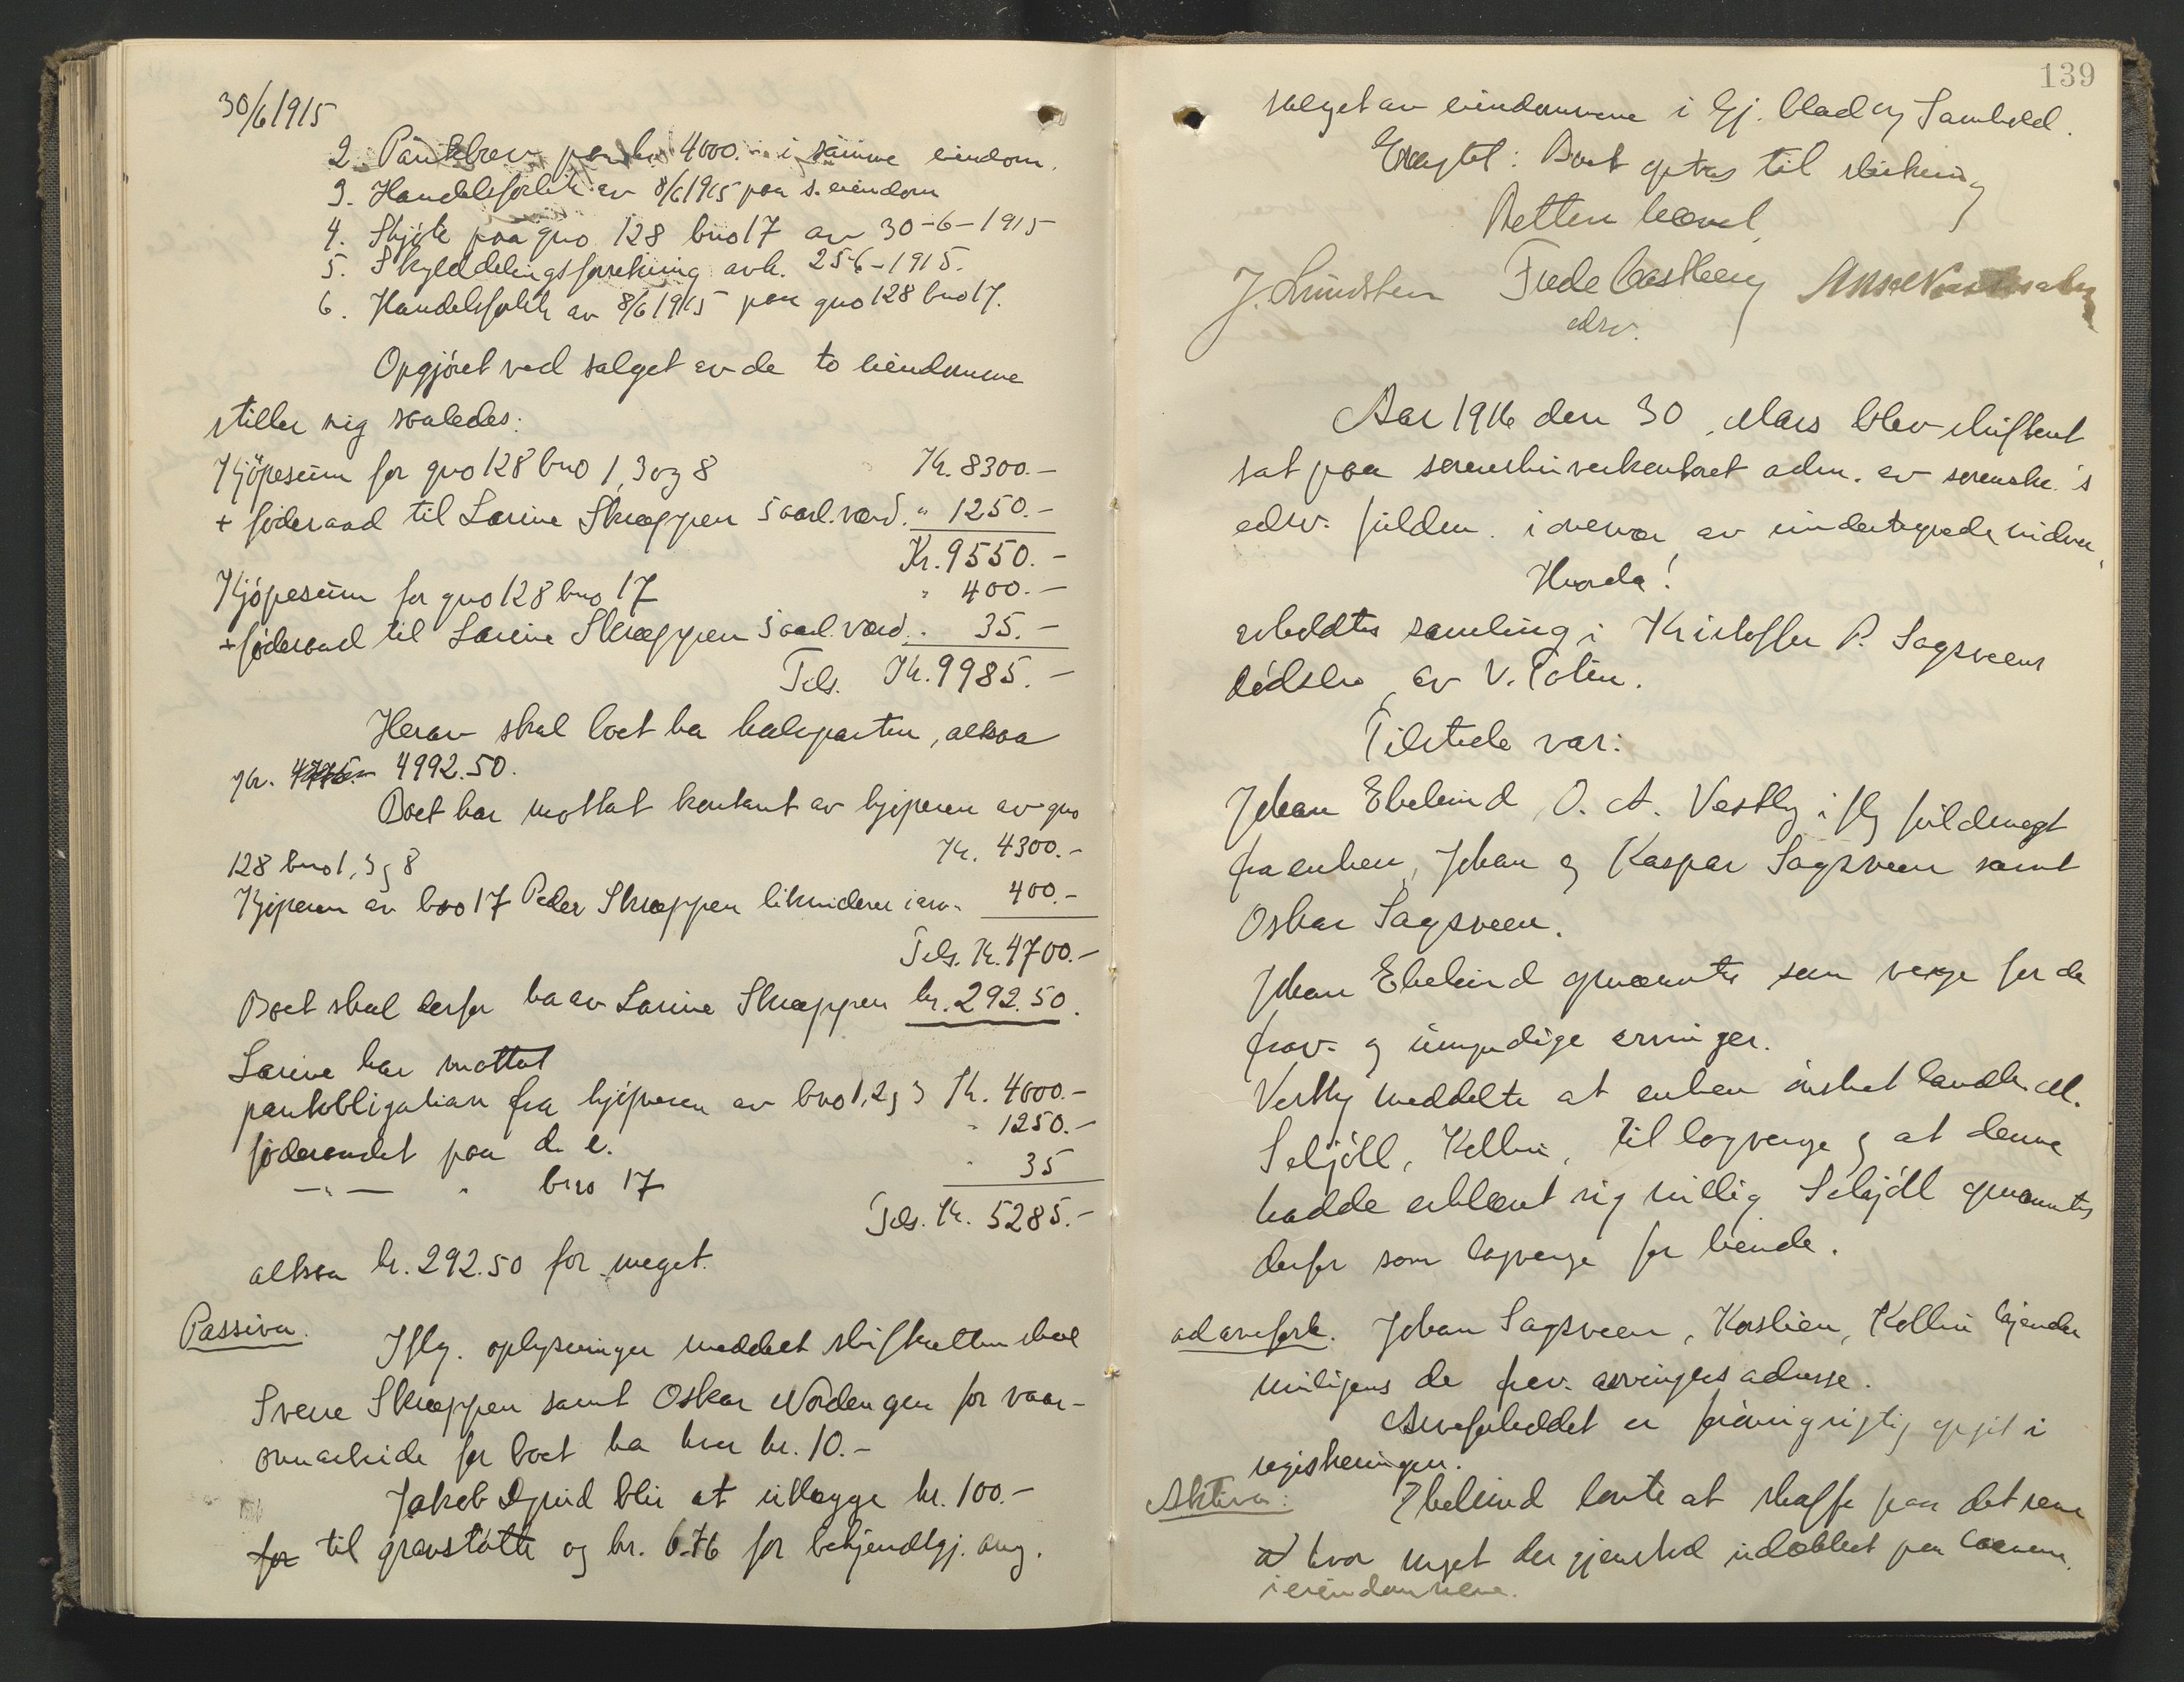 30/6 1915
2. Pantebrev paa kr. 4000.- i samme eiendom.
3. Handelsforlik av 8/6 1915 paa s. eiendom
4. Skjöte paa gno 128 bno 17 av 30-6-1915
5. Skylddelingsforretning avh. 25-6-1915.
6. Handelsforlik av 8/6 1915 paa gno 128 bno 17.
Opgjöret ved salget av de to eiendomme
stiller sig saaledes:
Kjöpesum for gno 128 bno 1, 3 og 8 Kr. 8300.-
+ föderaad til Larine Skræppen 5 aarl. værd. " 1250.-
Kr. 9550.-
Kjöpesum for gno 128 bno 17 " 400.-
+ föderaad til Larine Skræppen 5 aarl. værd. " 35.-
Tils. Kr. 9985.-
Herav skal boet ha halvparten, altsaa
kr. 4992.50.
Boet har mottat kontant av kjöperen av gno
128 bno 1, 3 og 8 Kr. 4300.-
Kjöperen av bno 17 Peder Skræppen likviderer i arv " 400.-
Tils. Kr. 4700.-
Boet skal derfor ha av Larine Skræppen kr. 292.50.
Larine har mottat
pantobligation fra kjöperen av bno 1, 2 og 3 Kr. 4000.-
föderaadet paa d. e. " 1250.-
—"— " bno 17 " 35
Tils. Kr. 5285.-
altsaa kr. 292.50 for meget.
Passiva. Iflg. oplysninger meddelt skifteretten skal
Sverre Skræppen samt Oskar Nordengen for vaar-
onnarbeide for boet ha hver kr. 10.-
Jakob blir at utlægge kr. 100.-
for til gravstötte og kr. 6.76 for bekjendtgj. ang.
139
salget av eiendommene i Gj. blad og Samhold.
Eragtet: Boet optas til slutning
Retten hævet.
J. Lundsten Frede Castberg
edsv.
Aar 1916 den 30 Mars blev skifteret
sat paa sorenskriverkontoret adm. av sorenskr.'s
edsv. fuldm. i overvær av undertegnede vidner.
Hvorda!
avholdtes samling i Kristoffer P. Sagsveens
dödsbo av V. Toten.
Tilstede var:
Johan Ebelund, O. A. Vestby iflg fuldmagt
fra enken, Johan og Kaspar Sagsveen samt
Oskar Sagsveen.
Johan Ebelund opnævntes som verge for de
frav. og umyndige arvinger.
Vestby meddelte at enken önsket landh.
Seljöll, Kolbu, til lagverge og at denne
hadde erklæret sig villig Seljöll opnævntes
derfor som lagverge for hende.
ad arveforh. Johan Sagsveen, Kolbu kjender
muligens de frav. arvingers adresse.
Arveforholdet er forövrig rigtig opgit i
registreringen.
Aktiva: Ebelund lovte at skaffe paa det rene
at hvor meget der gjenstod udækket paa laanene
i eiendommene.